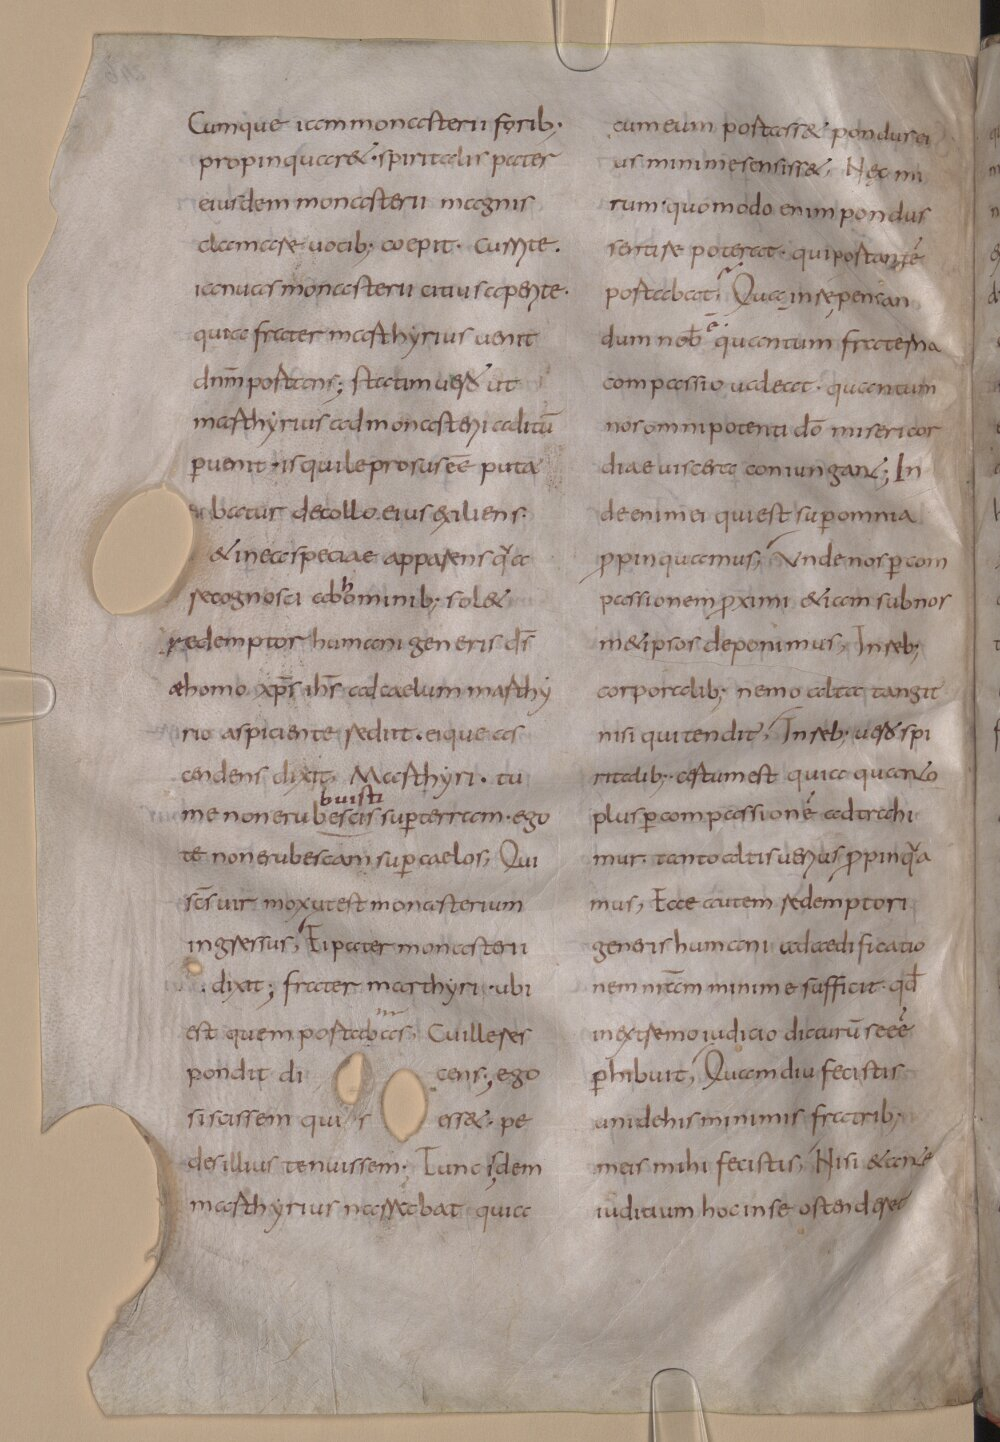 Cumque iam monasterii forib;
propinquar&. spiritalis pater
eiusdem monasterii magnis
clamare uocib; coepit. Currite.
ianuas monasterii citius aperite.
quia frater marthyrius uenit
dnm̄ portans; statim uero ut
marthyrius ad monasterii aditū
puenit. is qui leprosus eē puta
batur de collo eius exiliens.
& in ea speciae apparens q̄ a
recognosci ab hominib; sol&
redemptor humani generis ds̄
æ homo xp̄s ih̄s ad caelum marthy
rio aspiciente rediit. eique as
cendens dixit, Marthyri. tu
buisti
me non erubescis super terram. ego
te non erubescam sup caelos, Qui
sc̄s uir mox ut est monasterium
ingressus, Ei pater monasterii
dixit; frater marthyri. ubi
est quem portabas, Cui ille res
pondit dicens; ego
si scissem quis ess&. pe
des illius tenuissem; Tunc isdem
marthyrius narrabat quia
cum eum portass& pondus ei
us minime sensiss&, Nec mi
rum. quomodo enim pondus
sentire poterat. qui portantē
portabat, Qua in re pensan
dum nob̄ ē quantum fraterna
compassio ualeat. quantum
nos omnipotenti dō misericor
diae uiscera coniungant; In
de enim ei qui est sup omnia
ppinquamus, Unde nos p com
passionem pximi &iam sub nos
m&ipsos deponimus, In reb;
corporalib; nemo alta tangit
nisi qui tendit, In reb; uero spi
ritalib; certum est quia quanto
plus p compassionē adtrahi
mur. tanto altis uerius ppinq̄a
mus, Ecce autem redemptori
generis humani ad aedificatio
nem nr̄am minime sufficit. qd̄
in extremo iudicio dicturū se eē
phibuit, Quamdiu fecistis
uni de his minimis fratrib;
meis mihi fecistis, Nisi & ante
iuditium hoc in se ostender&